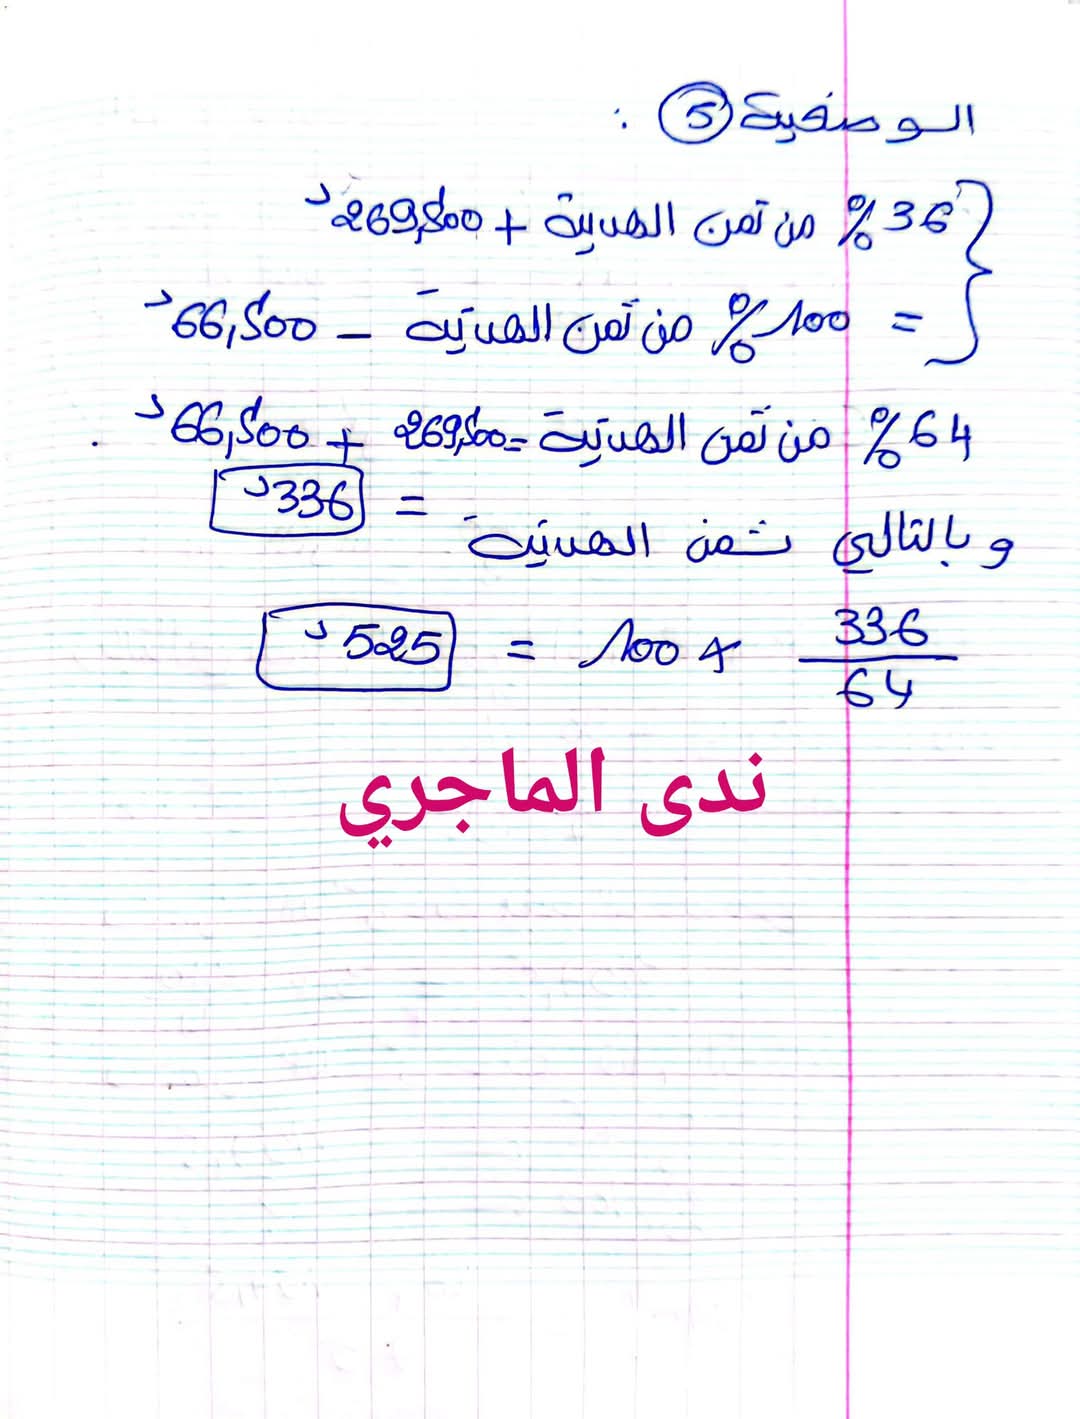 الوضعية 5 :
36% من ثمن الهدية + 269,500د
= 100% من ثمن الهدية - 66,500د
64% من ثمن الهدية = 269,500 + 66,500د .
= 336د
وبالتالي ثمن الهدية
336/64 × 100 = 525د
ندى الماجري